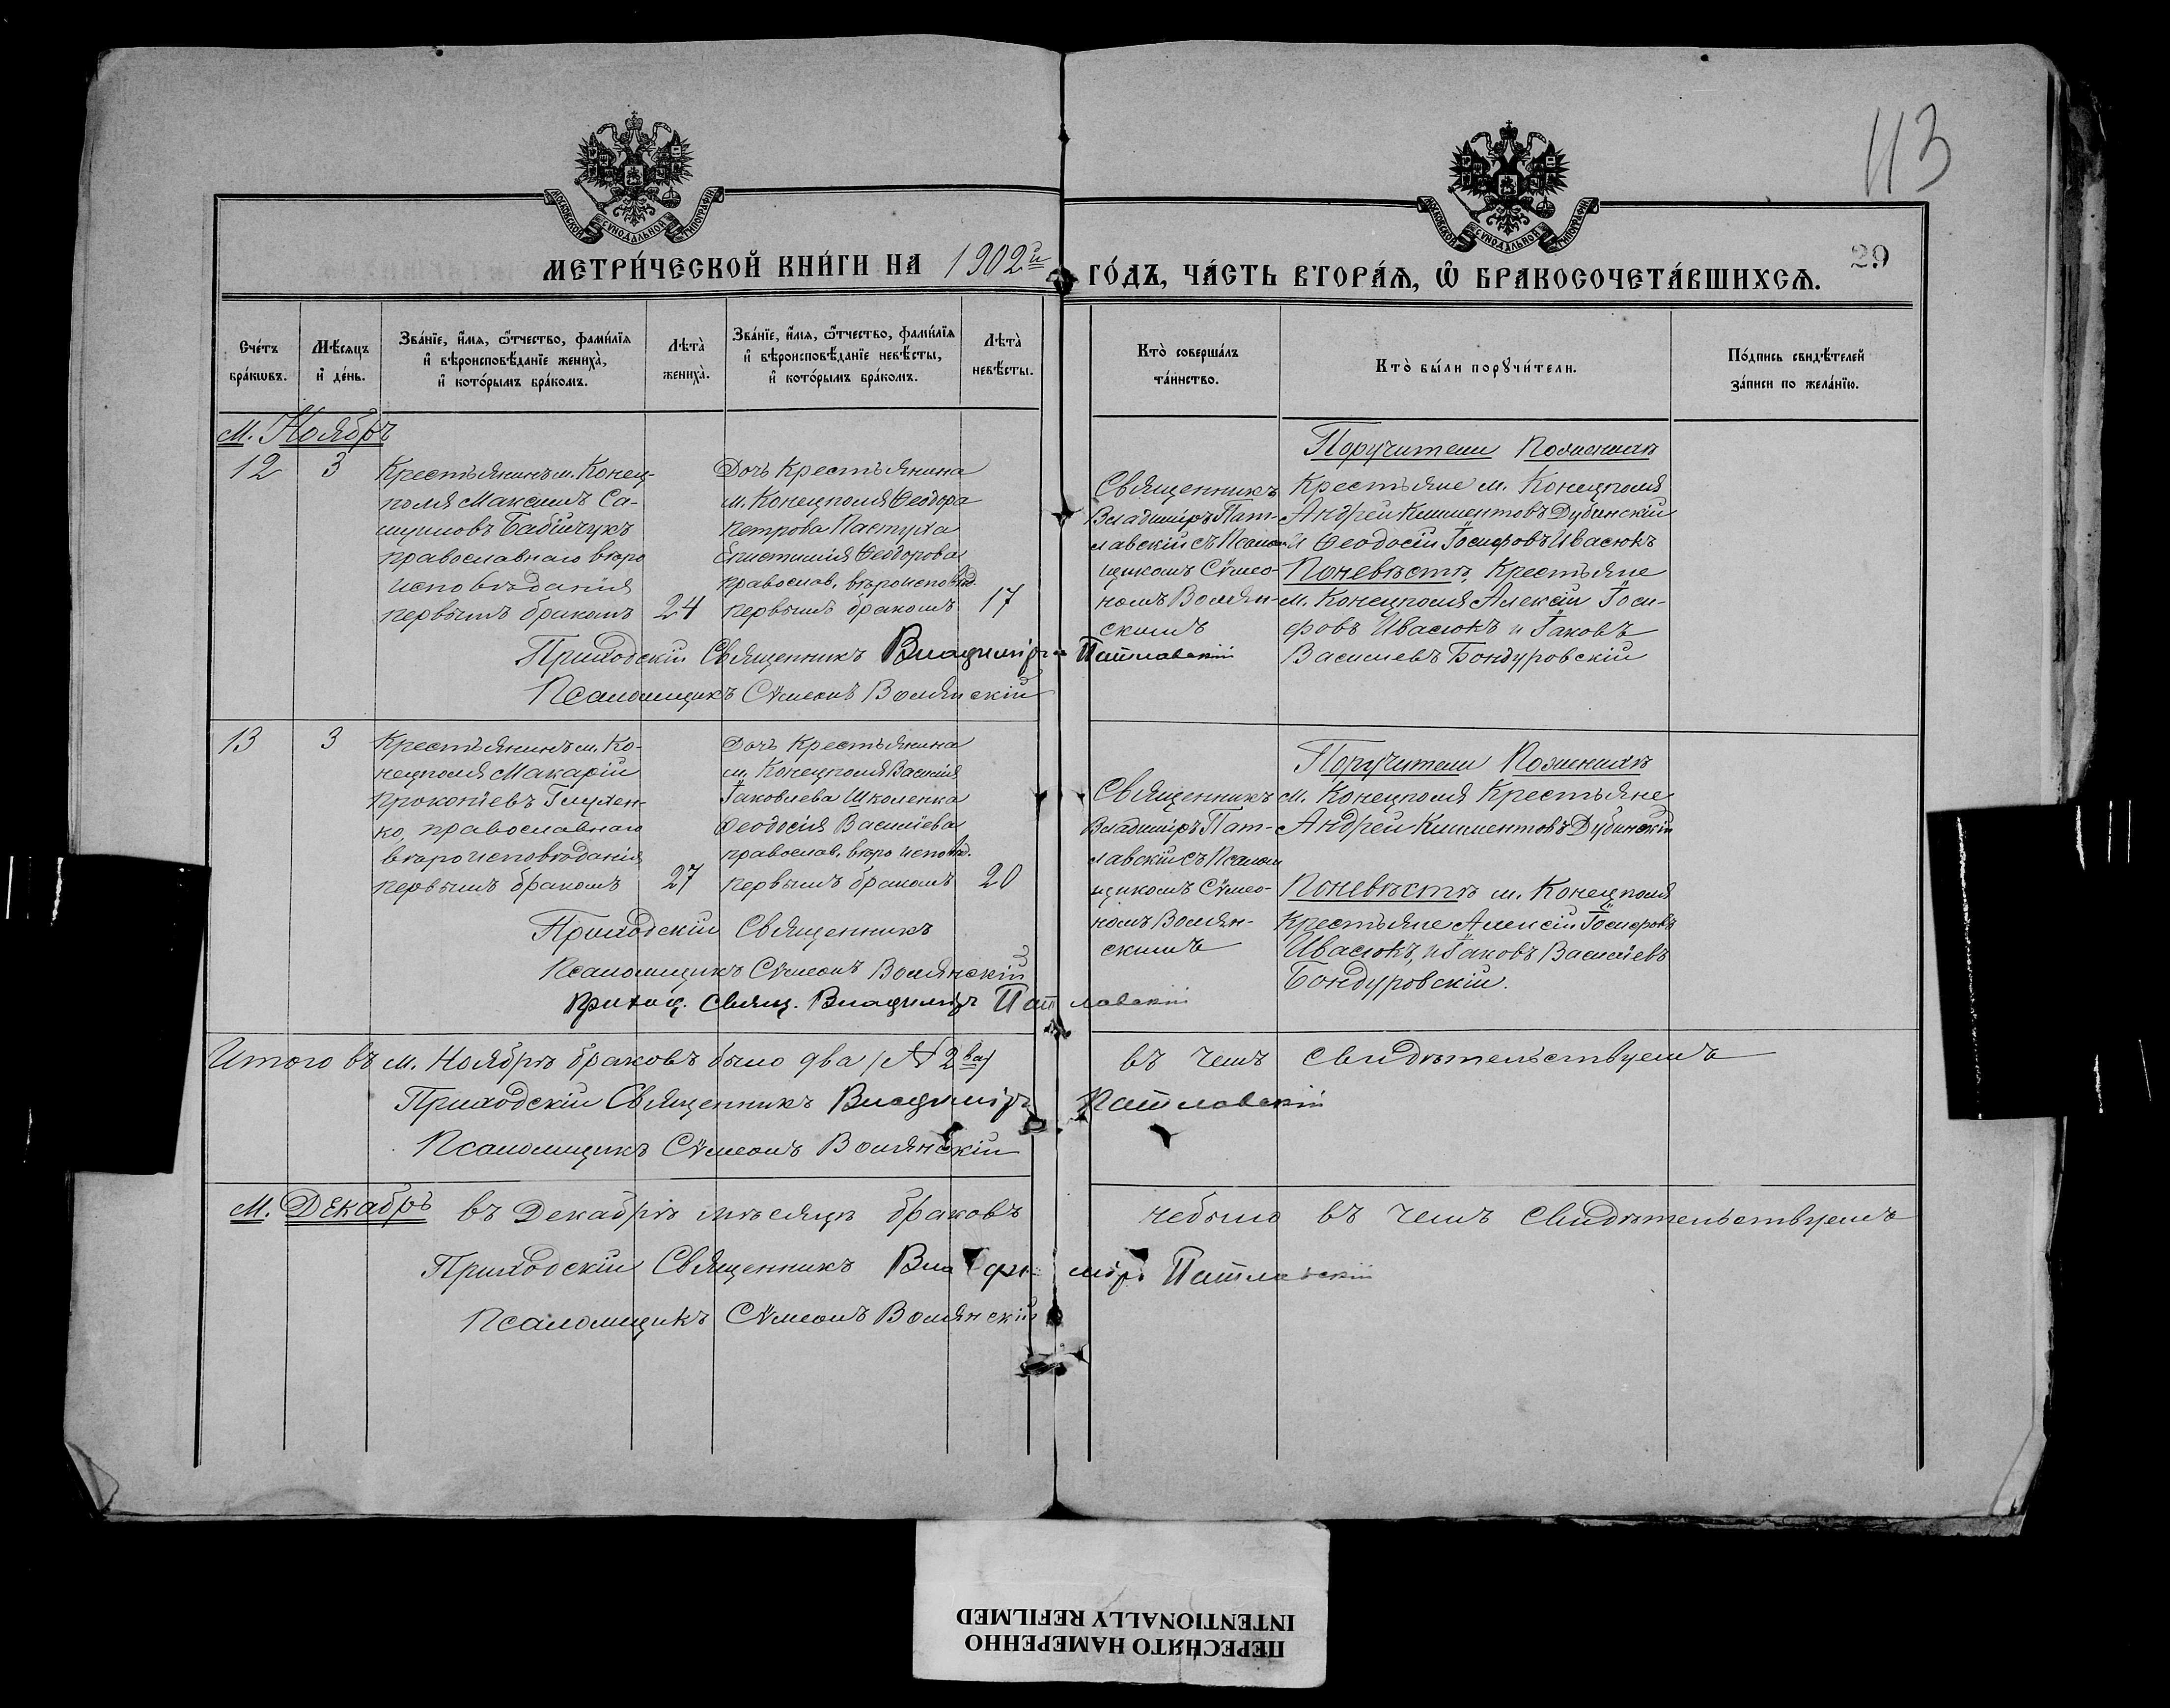 113
29
МОСКОВСКОЙ СѴНОДАЛЬНОЙ ТИПОГРАФІИ
МОСКОВСКОЙ СѴНОДАЛЬНОЙ ТИПОГРАФІИ
МЕТРИ́ЧЕСКОЙ КНИ́ГИ НА 1902й ГО́ДЪ, ЧА́СТЬ ВТОРА́Ѧ, Ѡ҆ БРАКОСОЧЕТА́ВШИХСѦ.
Сче́тъ бра́кѡвъ.
Мѣ́сѧцъ и҆ де́нь.
Зва́нїе, и҆́мѧ, ѻ҆́тчество, фамѝлїѧ и҆ вѣроисповѣ́данїе жениха̀, и҆ кото́рымъ бра́комъ.
Лѣта̀ жениха̀.
Зва́нїе, и҆́мѧ, ѻ҆́тчество, фамѝлїѧ и҆ вѣроисповѣ́данїе невѣ́сты, и҆ кото́рымъ бра́комъ.
Лѣта̀ невѣ́сты.
Кто̀ соверша́лъ та́инство.
Кто̀ бы́ли порꙋчи́тели.
По́дпись свидѣ́телей за́писи по жела́нїю.
м. Ноябрь
12
3
Крестьянинъ м. Конец-
поля Максимъ Са-
Бабійчукъ
православнаго вѣро
исповѣданія
первымъ бракомъ
24
Дочь Крестьянина
м. Конецполя Ѳеодора
Петрова Пастуха
Ѳеодорова
православ. вѣроисповѣд.
первымъ бракомъ
17
Священникъ
Владиміръ Пат-
лавскій съ Псалом-
щикомъ Сѵмео-
номъ Волян-
скимъ
Поручители По женихѣ
Крестьяне м. Конецполя
Андрей Климентовъ Дубинскій
и Ѳеодосій Іосифовъ Ивасюкъ
По невѣстѣ, Крестьяне
м. Конецполя Алексій Іоси-
фовъ Ивасюкъ и Іаковъ
Василіевъ Бондуровскій
Приходскій Священникъ Владиміръ Патлавскій
Псаломщикъ Сѵмеонъ Волянскій
13
3
Крестьянинъ м. Ко-
нецполя Макарій
Прокопіевъ Глущен-
ко, православнаго
вѣроисповѣданія
первымъ бракомъ
27
Дочь Крестьянина
м. Конецполя Василія
Іаковлева Школенка
Ѳеодосія Василіева
православ. вѣроисповѣд.
первымъ бракомъ
20
Священникъ
Владиміръ Пат-
лавскій съ Псалом
щикомъ Сѵмео-
номъ Волян-
скимъ
Поручители По женихѣ
м. Конецполя Крестьяне
Андрей Климентовъ Дубинскій
По невѣстѣ м. Конецполя
Крестьяне Алексій Іосифовъ
Ивасюкъ, и Іаковъ Василіевъ
Бондуровскій.
Приходскій Священникъ
Псаломщикъ Сѵмеонъ Волянскій
Приход. Свящ. Владиміръ Патлавскій
Итого въ м. Ноябрѣ браковъ было два (№ 2ва) въ чемъ свидѣтельствуемъ
Приходскій Священникъ Владиміръ Патлавскій
Псаломщикъ Сѵмеонъ Волянскій
м. Декабрь въ Декабрѣ мѣсяцѣ браковъ небыло въ чемъ свидѣтельствуемъ
Приходскій Священникъ Владиміръ Патлавскій
Псаломщикъ Сѵмеонъ Волянскій
ПЕРЕСНЯТО НАМЕРЕННО
INTENTIONALLY REFILMED